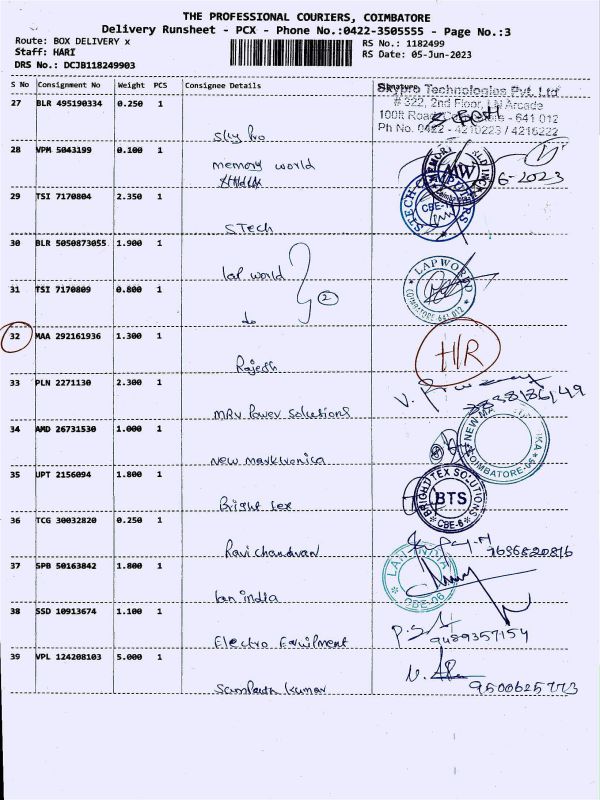 THE PROFESSIONAL COURIERS, COIMBATORE
Delivery Runsheet - PCX - Phone No.:0422-3505555 - Page No.:3
Route: BOX DELIVERY x
Staff: HARI
DRS No.: DCJB118249903
RS No.: 1182499
RS Date: 05-Jun-2023
S No Consignment No Weight PCS Consignee Details Signature
27 BLR 495190334 0.250 1
Sky Pro
Skypro Technologies Pvt. Ltd
# 322, 2nd Floor, LN Arcade
100ft Road, - 641 012
Ph No. 0422 - 4210223 / 4216222
28 VPM 5043199 0.100 1
memory world
MW
6-2023
29 TSI 7170804 2.350 1
STech
CBE-
30 BLR 5050873055 1.900 1
lap world
31 TSI 7170809 0.800 1
do
2
LAPWORLD
COIMBATORE-641 012
32 MAA 292161936 1.300 1
Rajesh
H/R
33 PLN 2271130 2.300 1
MRV Power Solutions
34 AMD 26731530 1.000 1
New marktronica
NEW MA
COIMBATORE-06
35 UPT 2156094 1.800 1
Bright tex
BRIGHT TEX SOLUTIONS
BTS
CBE-6
36 TCG 30032820 0.250 1
Ravi chandran
7696820816
37 SPB 50163842 1.800 1
lan india
LAN INDIA
CBE-06
38 SSD 10913674 1.100 1
Electro Equilment
9489357154
39 VPL 124208103 5.000 1
Sampath kumar
9500625773